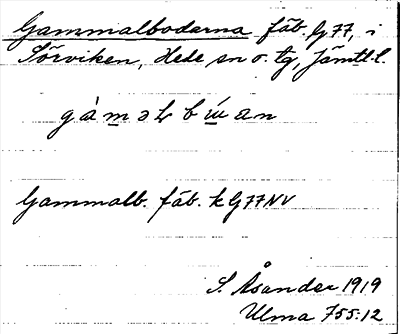 Gammalbodarna fäb. G77, i
Sörviken, Hede sn o. tg, Jämtl. l.
gàməɫ bẃan
Gammalb. fäb. k G77NV
S. Åsander 1919
Ulma 755:12